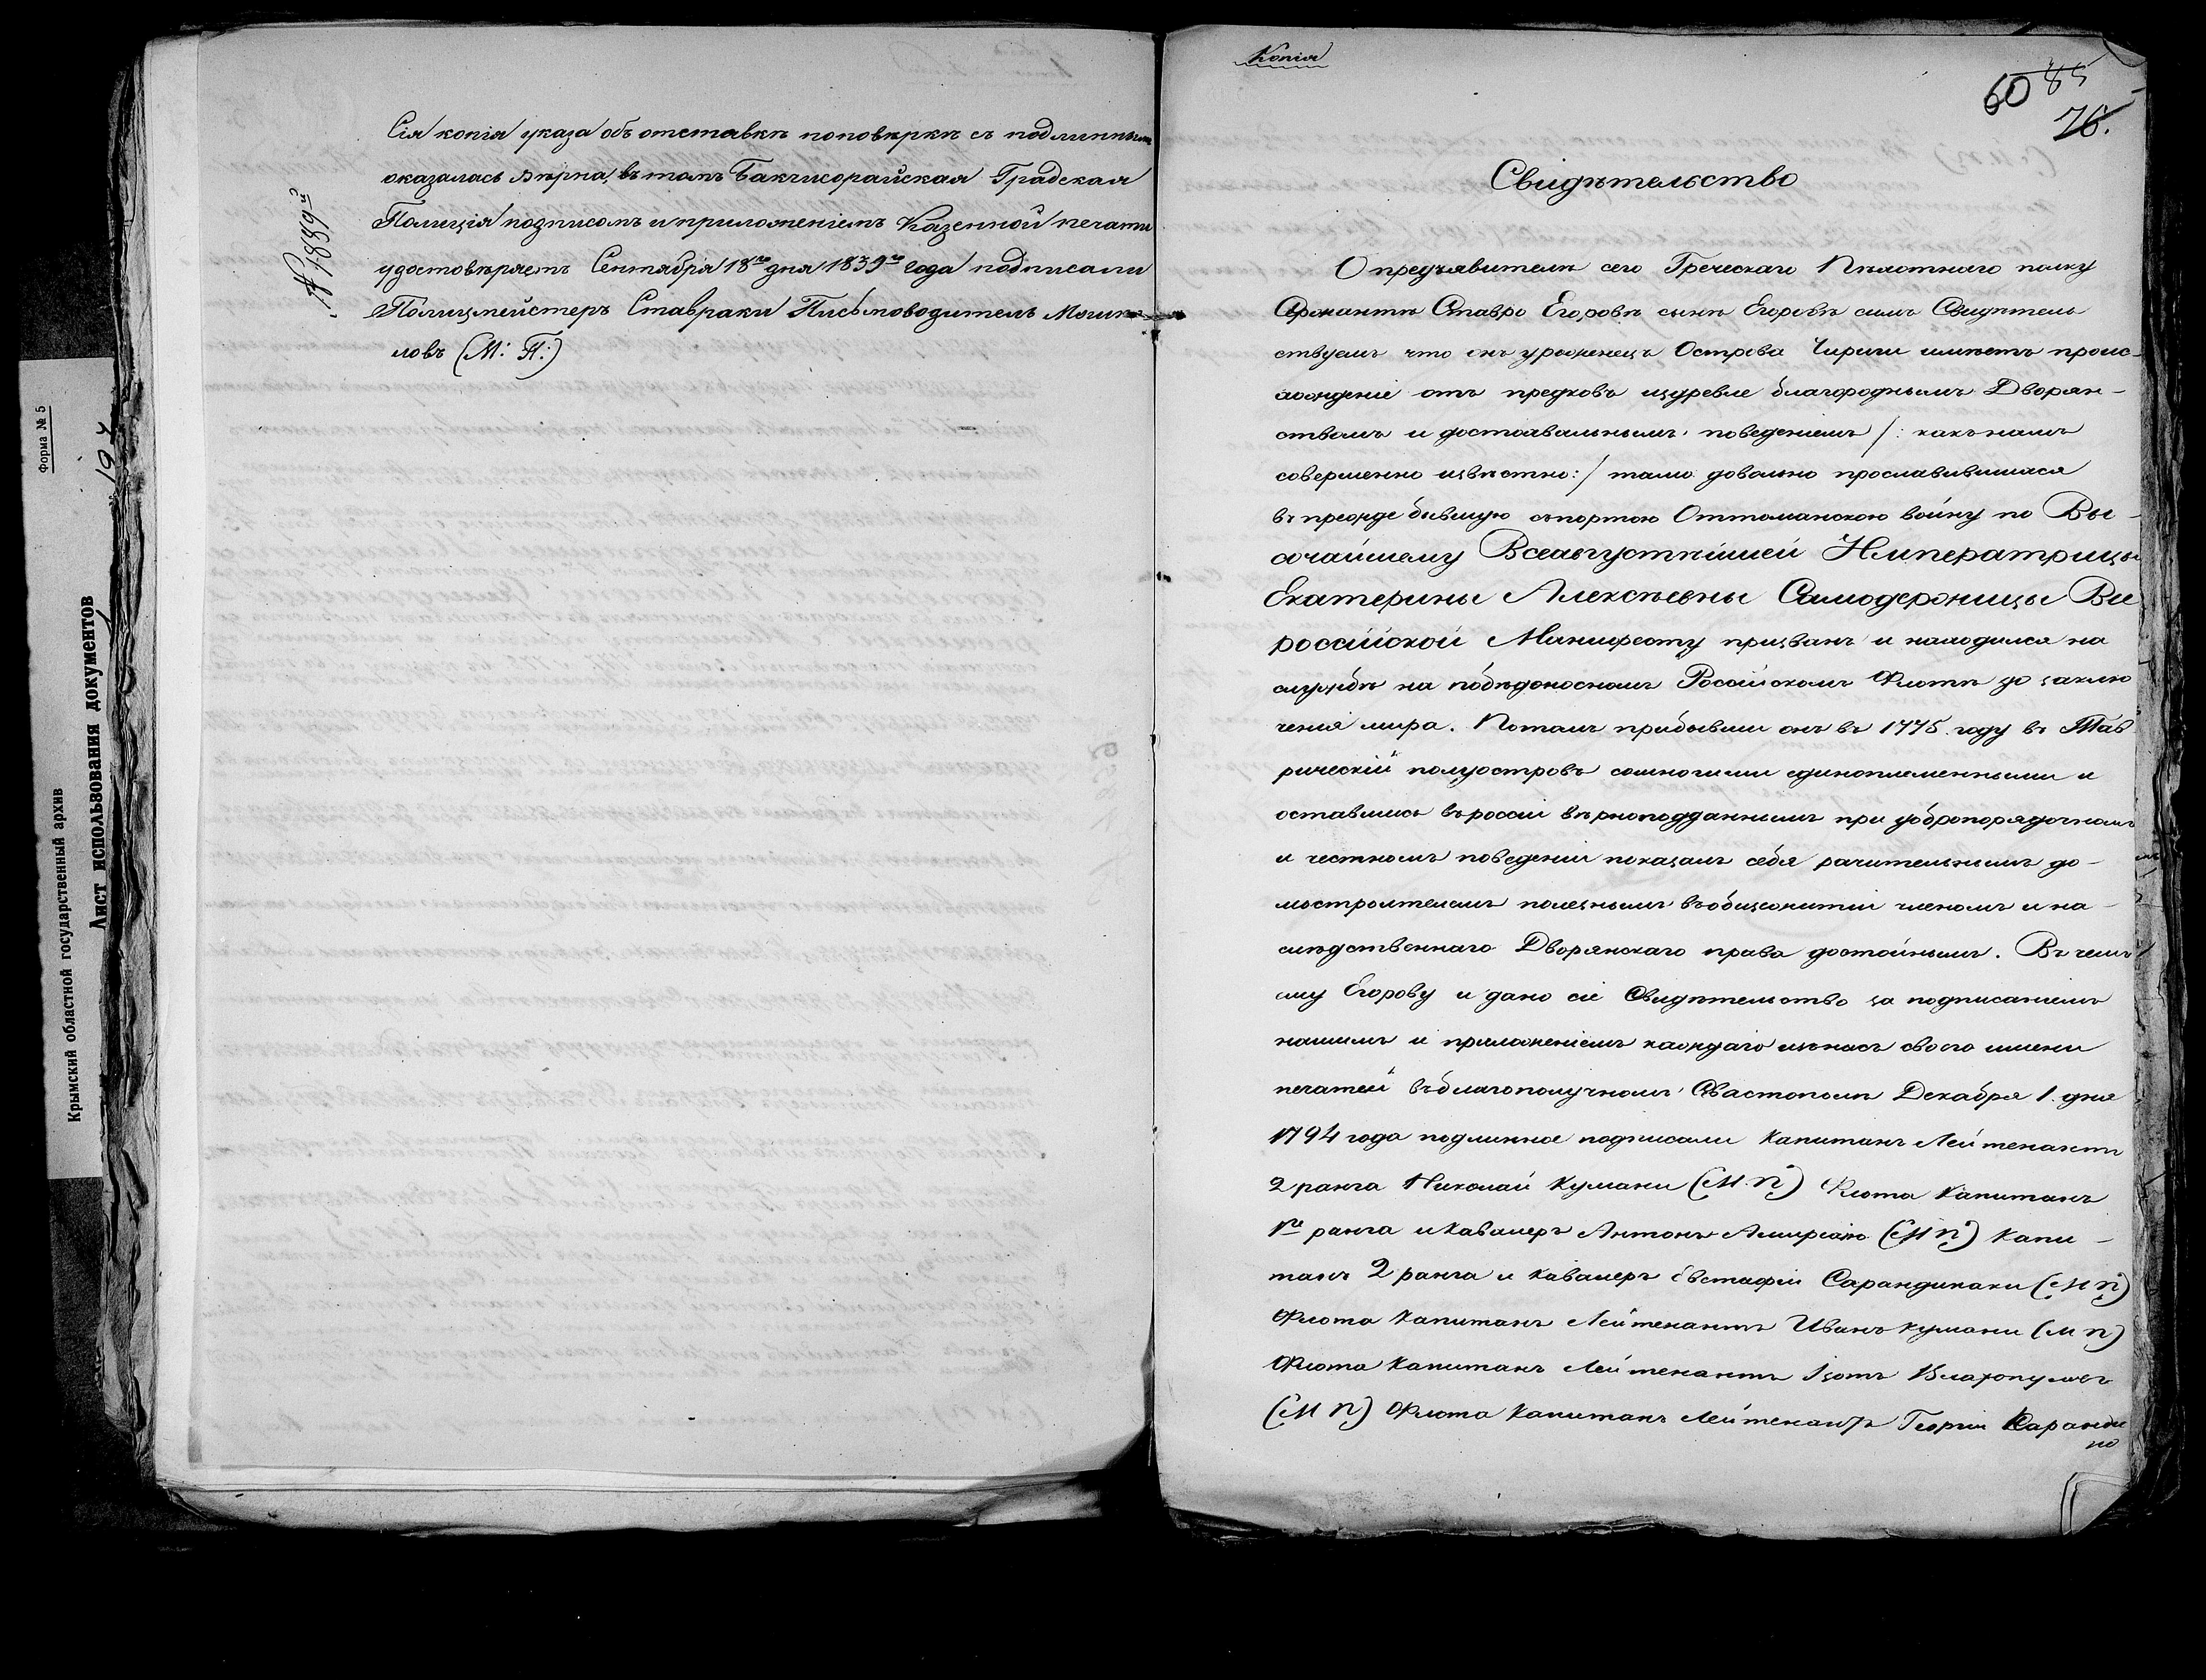 Форма № 5
Крымский областной государственный архив
Лист использования документов
197
№ 1889й
Сія копія указа объ отставкѣ поповѣркѣ съ подлиннымъ
оказалась вѣрна, въ томъ Бакчисорайская Градская
Полиція подписомъ и приложеніемъ Казенной печати
удостовѣряетъ Сентября 18го дня 1839го года подписали
Полицмейстеръ Ставраки Письмоводитель Могии
ловъ (М: П:)
Копія
60 85
76.
Свидѣтельство
О предъявителѣ сего Греческаго Пѣхотнаго полку
Сержантѣ Ставро Егоровѣ сынѣ Егоровѣ симъ Свидѣтель
ствуемъ что онъ уроженецъ Острова Чириги имѣетъ проис-
хожденіе отъ предковъ издревле благороднымъ Дворян-
ствомъ и достохвальнымъ поведеніемъ /: какъ намъ
совершенно извѣстно :/ тамо довольно прославившихся
въ прежде бывшую съпортою Оттоманскою войну по Вы-
сочайшему Всеавгустѣйшей Императрицы
Екатерины Алексѣевны Самодержицы Все
россійской Манифесту призванъ и находился на
службѣ на побѣдоносномъ Россійскомъ Флотѣ до заклю
ченія мира. Потомъ прибывши онъ въ 1775. году въ Тав
рическій полуостровъ сомногими единоплеменными и
оставшись въроссіи вѣрноподданнымъ при добропорядочномъ
и честномъ поведеніи показалъ себя рачительнымъ до-
мостроителемъ полезнымъ въобщежитіи членомъ и на-
слѣдственнаго Дворянскаго права достойнымъ. Въ чемъ
ему Егорову и дано сіе Свидѣтельство за подписаніемъ
нашимъ и приложеніемъ каждаго изънасъ своего имени
печатей въблагополучномъ Севастополѣ Декабря 1. дня
1794 года подлинное подписали Капитанъ Лейтенантъ
2 ранга Николай Кумани (М. П.) Флота Капитанъ
1го ранга и Кавалеръ Антонъ Алексіано (М П.) Капи-
танъ 2 ранга и кавалеръ Евстафіи Сарандинаки (М П.)
Флота Капитанъ Лейтенантъ Иванъ Кумани (М П)
Флота Капитанъ Лейтенантъ Изотъ Влахопуловъ
(М П) Флота Капитанъ Лейтенантъ Георгіи Саранди
но